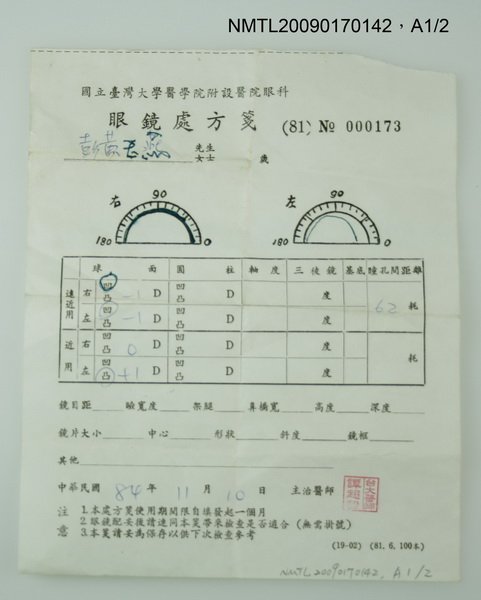 NMTL20090170142，A1/2
國立臺灣大學醫學院附設醫院眼科
眼鏡處方箋 (81) № 000173
彭 先生 女士 歲
右 90 180 0
左 90 180 0
球面 圓柱 軸度 三稜鏡 基底 瞳孔間距離
遠近用 右 凹 凸 -1 D 凹 凸 D 度
左 凹 凸 -1 D 凹 凸 D 度 62 耗
近用 右 凹 凸 0 D 凹 凸 D 度
左 凹 凸 +1 D 凹 凸 D 度 耗
鏡目距 瞼寬度 架腿 鼻橋寬 高度 深度
鏡片大小 中心 形狀 斜度 鏡框
其他
中華民國 84 年 11 月 10 日 主治醫師 台大醫師
注意
1.本處方箋使用期間限自填發起一個月
2.眼鏡配妥後請連同本箋帶來檢查是否適合(無需掛號)
3.本箋請妥為保存以供下次檢查參考
(19-02) (81.6.100本)
NMTL20090170142, A1/2